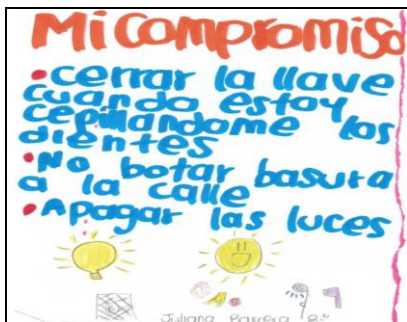 Mi compromiso
• cerrar la llave
cuando estoy
cepillandome los
dientes
• No botar basura
a la calle
• Apagar las luces
Juliana Barrera